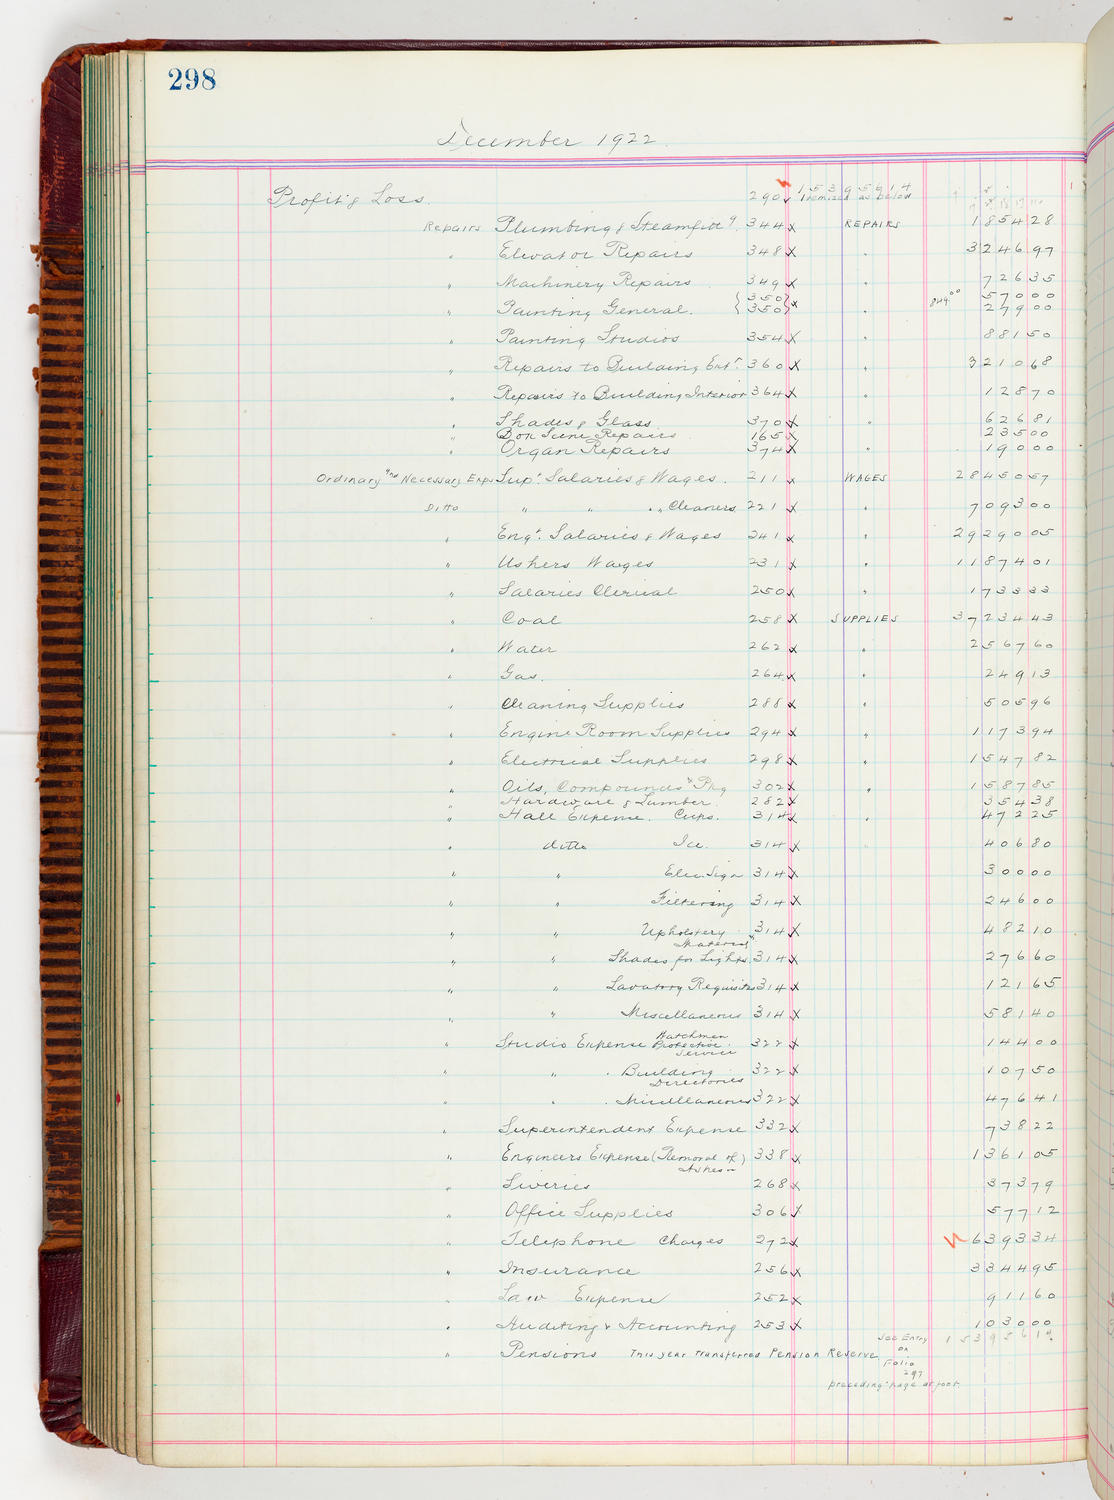 298
December 1922
Profit & Loss. 290 1 5 3 9 5 6 1 4
Itemized as below
Repairs Plumbing & Steamfitg. 344 x REPAIRS 1 8 5 4 2 8
" Elevator Repairs 348 x " 3 2 4 6 9 7
" Machinery Repairs 349 x " 7 2 6 3 5
" Painting General. { 350 } x " 849.00 5 7 0 0 0
{ 350 } 2 7 9 0 0
" Painting Studios 354 x " 8 8 1 5 0
" Repairs to Building Extr. 360 x " 3 2 1 0 6 8
" Repairs to Building Interior 364 x " 1 2 8 7 0
" Shades & Glass 370 x " 6 2 6 8 1
" 165 x 2 3 5 0 0
" Organ Repairs 374 x " 1 9 0 0 0
Ordinary and Necessary Exps Supt. Salaries & Wages. 211 x WAGES 2 8 4 5 0 5 7
Ditto " " " Cleaners 221 x " 7 0 9 3 0 0
" Engr. Salaries & Wages 241 x " 2 9 2 9 0 0 5
" Ushers Wages 231 x " 1 1 8 7 4 0 1
" Salaries Clerical 250 x " 1 7 3 3 3 3
" Coal 258 x SUPPLIES 3 7 2 3 4 4 3
" Water 262 x " 2 5 6 7 6 0
" Gas. 264 x " 2 4 9 1 3
" Cleaning Supplies 288 x " 5 0 5 9 6
" Engine Room Supplies 294 x " 1 1 7 3 9 4
" Electrical Supplies 298 x " 1 5 4 7 8 2
" Oils, Compounds & Pkg 302 x " 1 5 8 7 8 5
" Hardware & Lumber. 282 x 3 5 4 3 8
" Hall Expense. Cups. 314 x " 4 7 2 2 5
" ditto Ice. 314 x 4 0 6 8 0
" " Elec. Sign 314 x 3 0 0 0 0
" " Filtering 314 x 2 4 6 0 0
" " Upholstery 314 x 4 8 2 1 0
Material
" " Shades for Lights 314 x 2 7 6 6 0
" " Lavatory Requisites 314 x 1 2 1 6 5
" " Miscellaneous 314 x 5 8 1 4 0
" Studio Expense Watchmen 322 x 1 4 4 0 0
Protective
Service
" " Building 322 x 1 0 7 5 0
Directories
" " Miscellaneous 322 x 4 7 6 4 1
" Superintendent Expense 332 x 7 3 8 2 2
" Engineers Expense (Removal of) 338 x 1 3 6 1 0 5
Ashes
" Liveries 268 x 3 7 3 7 9
" Office Supplies 306 x 5 7 7 1 2
" Telephone Charges 272 x 6 3 9 3 3 4
" Insurance 256 x 3 3 4 4 9 5
" Law Expense 252 x 9 1 1 6 0
" Auditing & Accounting 253 x 1 0 3 0 0 0
See Entry 1 5 3 9 5 6 1 4
" Pensions This year transferred Pension Reserve on
Folio
297
preceding page at foot.